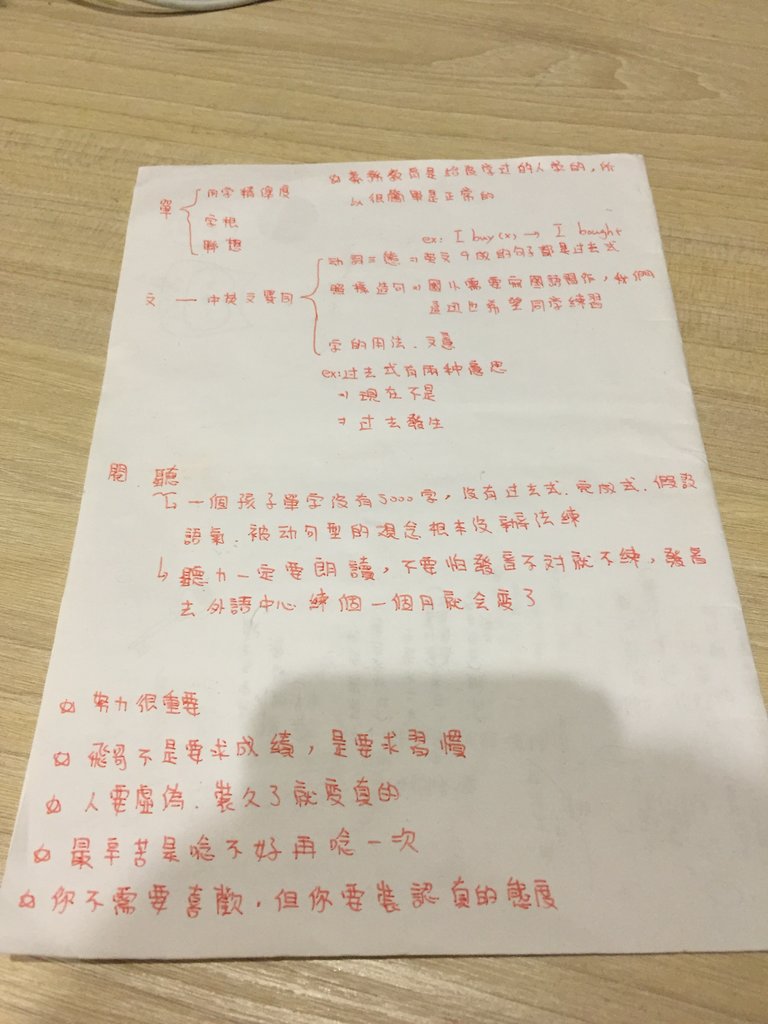 ☆ 義務教育是給沒學过的人學的，所
以很簡單是正常的
單
內字精準度
字根
聯想
ex: I buy (x) → I bought
文 — 中英文異同
动詞三態 ⇒ 英文9成的句子都是过去式
照樣造句 ⇒ 國小需要寫國語習作，我們
這边也希望同學練習
字的用法、文意
ex:过去式有兩种意思
⇒ 現在不是
⇒ 过去發生
閱、聽
↳ 一個孩子單字沒有5000字，沒有过去式、完成式、假設
語氣、被动句型的观念根本沒辦法練
↳ 聽力一定要朗讀，不要怕發音不对就不練，發音
去外語中心練個一個月就会变了
☆ 努力很重要
☆ 飛哥不是要求成績，是要求習慣
☆ 人要虛偽、裝久了就变真的
☆ 最辛苦是唸不好再唸一次
☆ 你不需要喜歡，但你要裝認真的態度